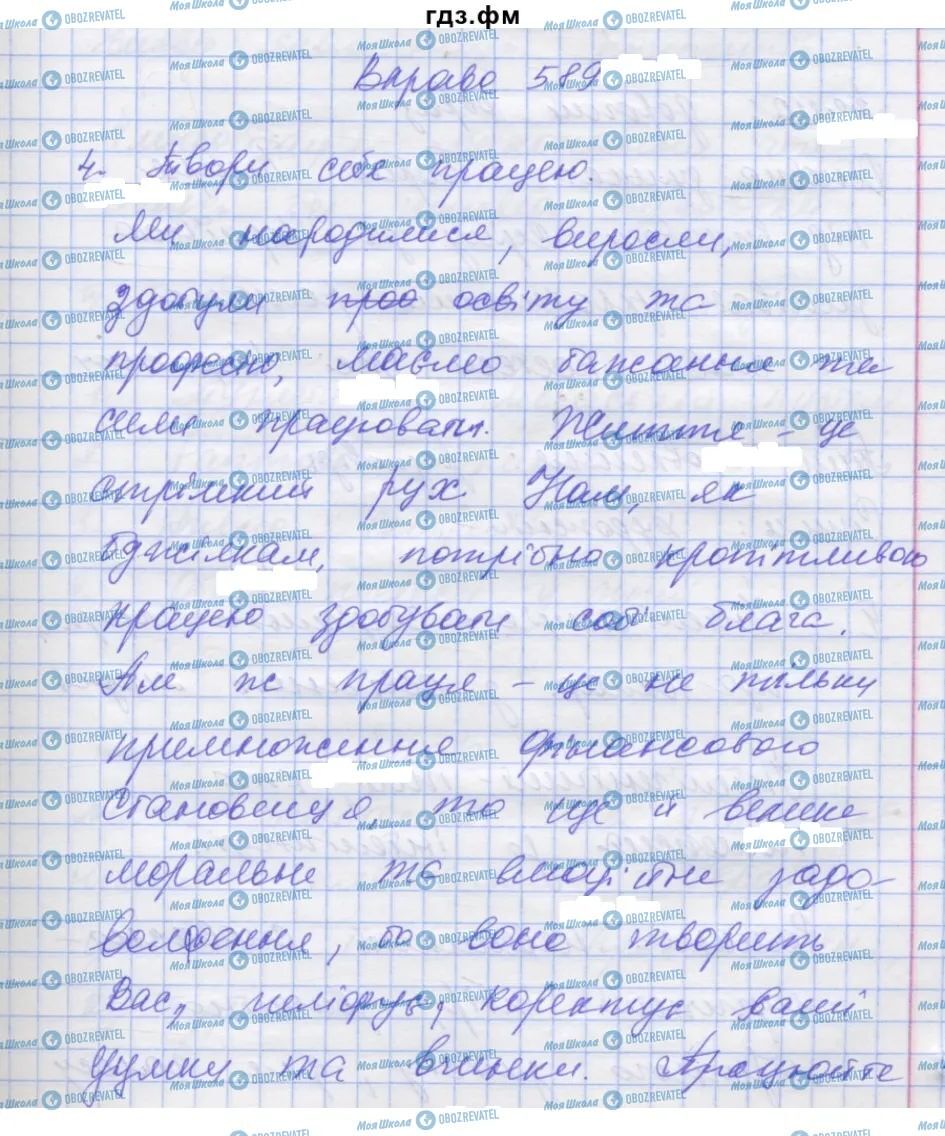 гдз.фм
Вправа 589
4. Твори себе працею.
Ми народилися, виросли,
здобули про освіту та
професію, маємо бажання та
сили працювати. Життя – це
стрімкий рух Нам, як
бджілкам, потрібно кропітливою
працею здобувати собі блага.
Але ж праця – це не тільки
примноження фінансового
становища, то ще й велике
моральне та емоційне задо-
волення, бо вона творить
Вас, шліфує, коректує ваші
думки та вчинки. Працюйте